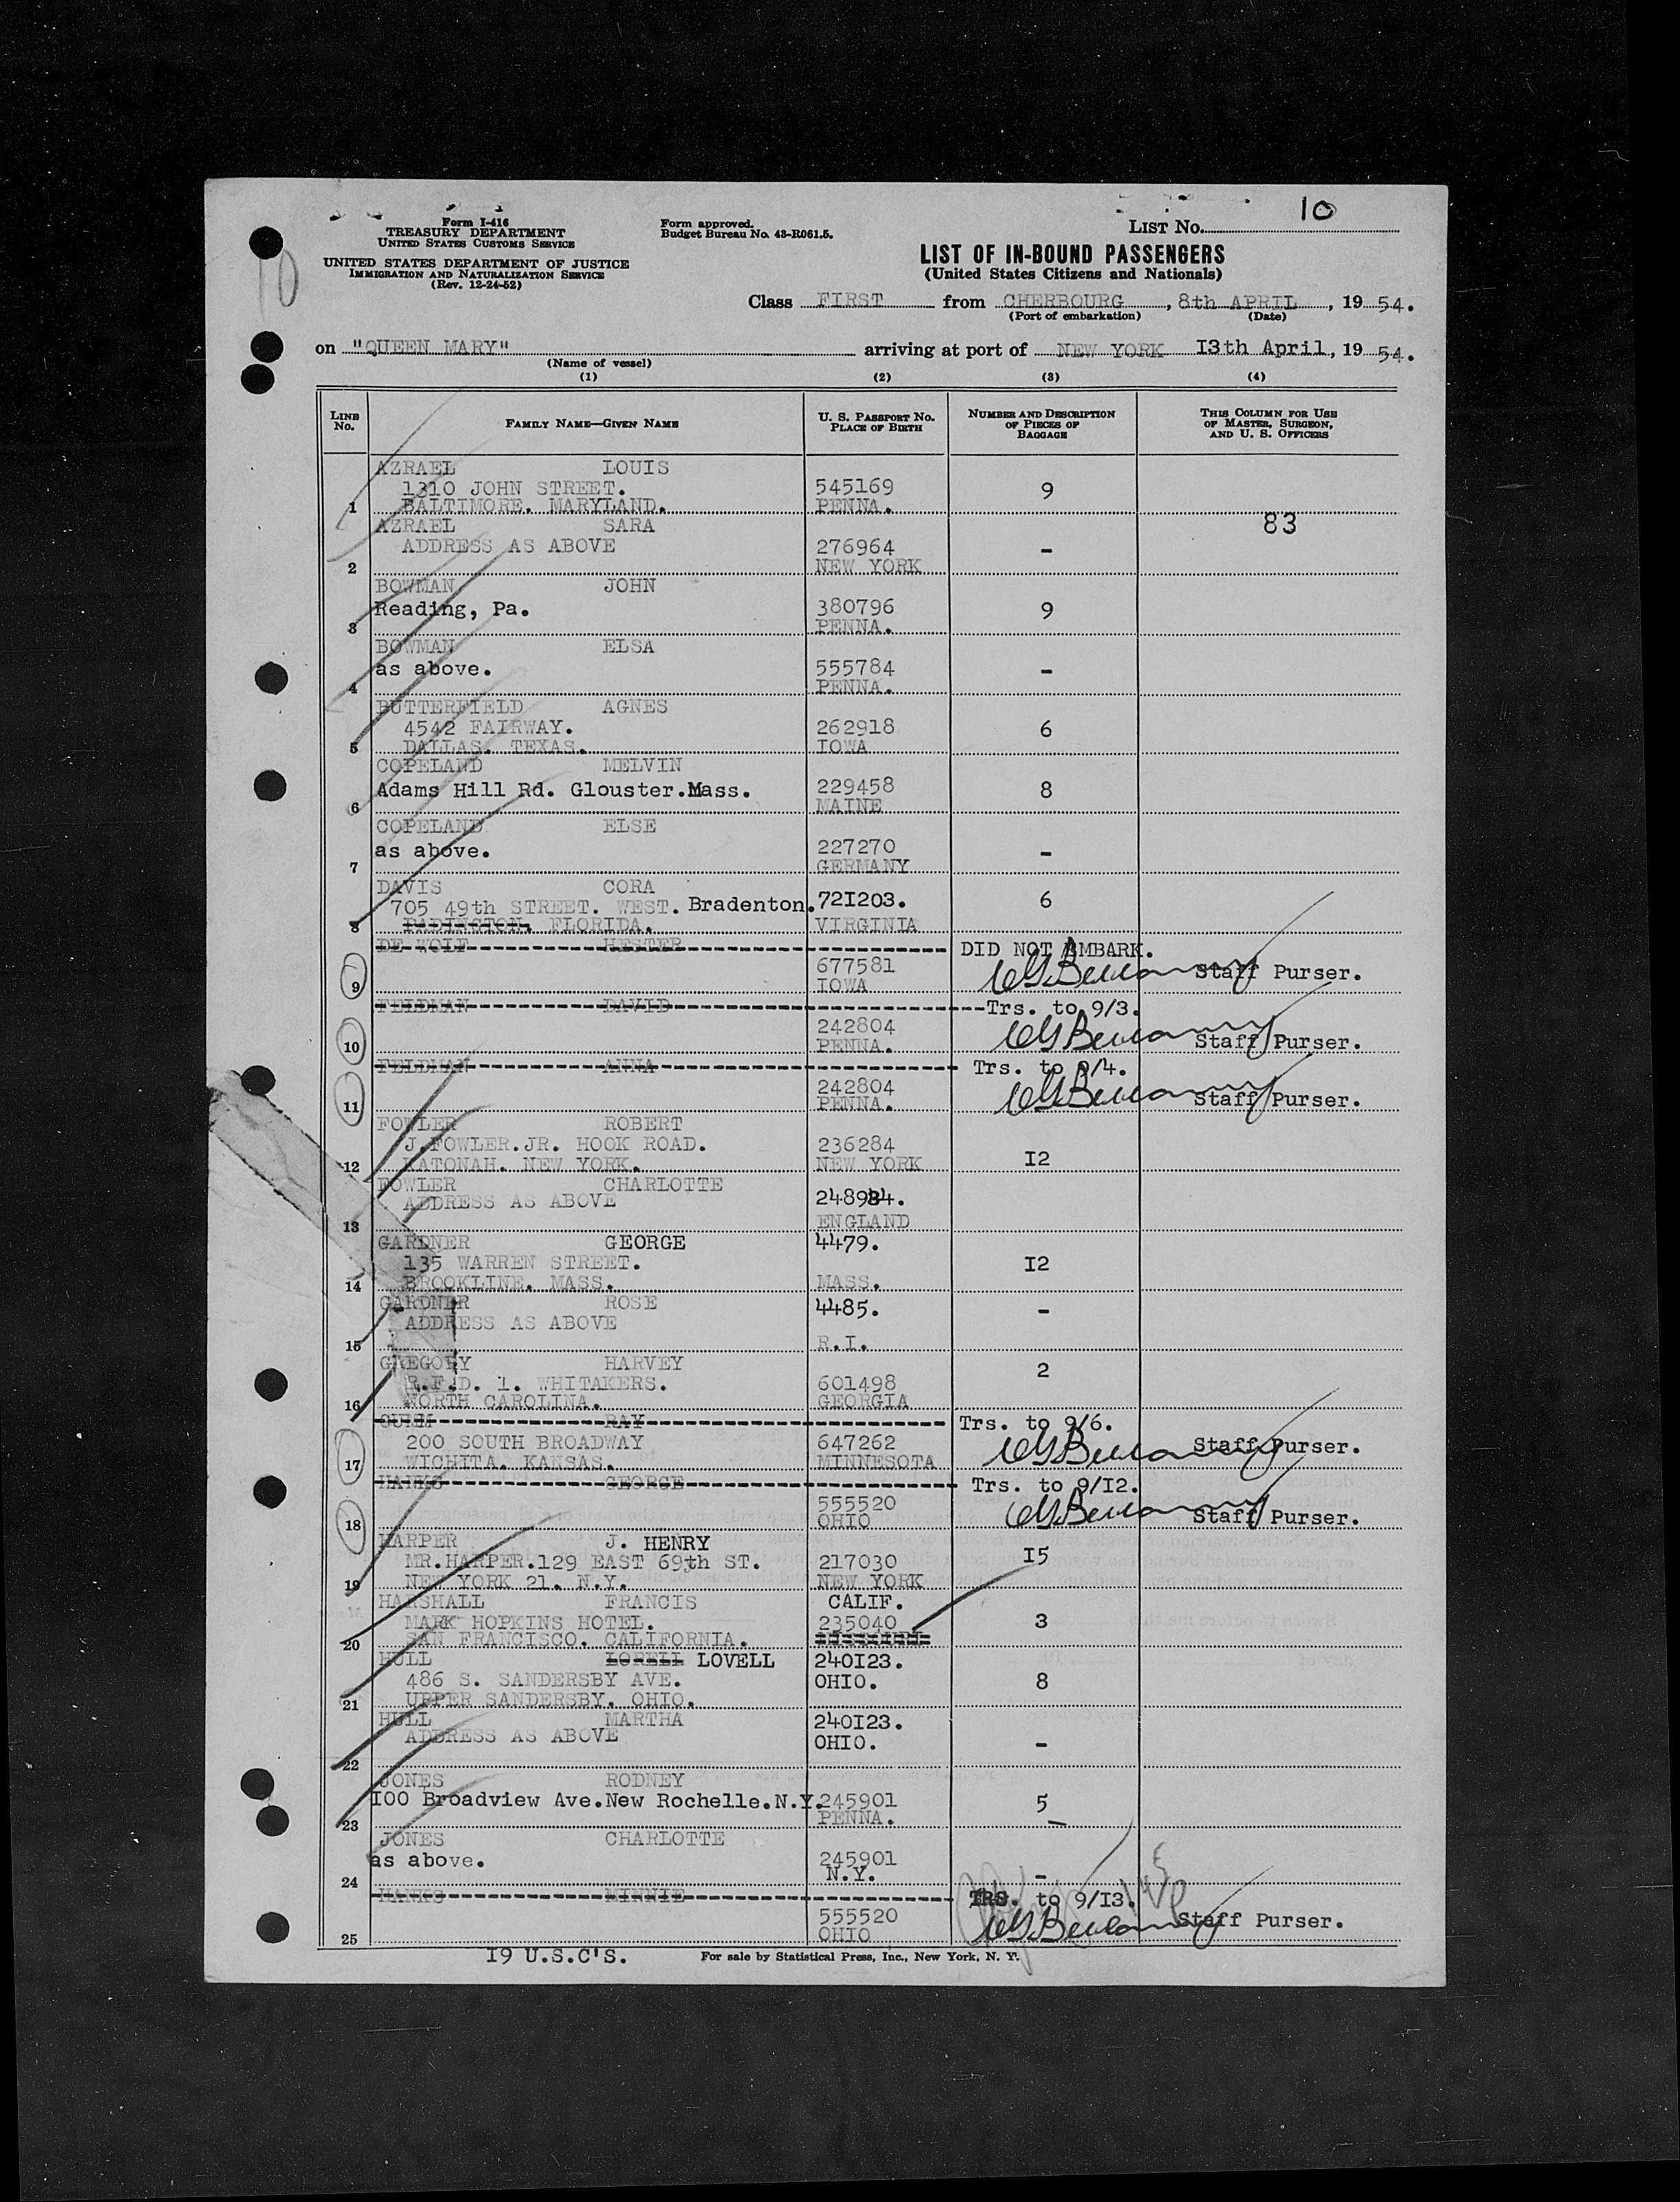 10
Form I-416
TREASURY DEPARTMENT
UNITED STATES CUSTOMS SERVICE
UNITED STATES DEPARTMENT OF JUSTICE
IMMIGRATION AND NATURALIZATION SERVICE
(Rev. 12-24-52)
Form approved.
Budget Bureau No. 43-R061.5.
LIST No. 10
LIST OF IN-BOUND PASSENGERS
(United States Citizens and Nationals)
Class FIRST from CHERBOURG, 8th APRIL, 1954.
(Port of embarkation) (Date)
on "QUEEN MARY" arriving at port of NEW YORK 13th April, 1954.
(Name of vessel)
(1) (2) (3) (4)
LINE No. FAMILY NAME—GIVEN NAME U. S. PASSPORT No. PLACE OF BIRTH NUMBER AND DESCRIPTION OF PIECES OF BAGGAGE THIS COLUMN FOR USE OF MASTER, SURGEON, AND U. S. OFFICERS
AZRAEL LOUIS
1310 JOHN STREET. 545169 9
1 BALTIMORE. MARYLAND. PENNA.
AZRAEL SARA 83
ADDRESS AS ABOVE 276964 -
2 NEW YORK
BOWMAN JOHN
Reading, Pa. 380796 9
3 PENNA.
BOWMAN ELSA
as above. 555784 -
4 PENNA.
BUTTERFIELD AGNES
4542 FAIRWAY. 262918 6
5 DALLAS. TEXAS. IOWA
COPELAND MELVIN
Adams Hill Rd. Glouster.Mass. 229458 8
6 MAINE
COPELAND ELSE
as above. 227270 -
7 GERMANY
DAVIS CORA
705 49th STREET. WEST. Bradenton. 721203. 6
8 PADINGTON. FLORIDA. VIRGINIA
DE WOLF HESTER DID NOT EMBARK.
677581 Staff Purser.
9 IOWA
FELDMAN DAVID Trs. to 9/3.
242804
10 PENNA. Staff Purser.
FELDMAN ANNA Trs. to 9/4.
242804
11 PENNA. Staff Purser.
FOWLER ROBERT
J.FOWLER.JR. HOOK ROAD. 236284
12 KATONAH. NEW YORK. NEW YORK 12
FOWLER CHARLOTTE
ADDRESS AS ABOVE 248984.
13 ENGLAND
GARDNER GEORGE 4479.
135 WARREN STREET. 12
14 BROOKLINE. MASS. MASS.
GARDNER ROSE 4485. -
ADDRESS AS ABOVE
15 R.I.
GREGORY HARVEY 2
R.F.D. 1. WHITAKERS. 601498
16 NORTH CAROLINA. GEORGIA
RAY Trs. to 9/6.
200 SOUTH BROADWAY 647262 Staff Purser.
17 WICHITA. KANSAS. MINNESOTA
HANKS GEORGE Trs. to 9/12.
555520
18 OHIO Staff Purser.
HARPER J. HENRY
MR.HARPER.129 EAST 69th ST. 217030 15
19 NEW YORK 21. N.Y. NEW YORK
HARSHALL FRANCIS CALIF.
MARK HOPKINS HOTEL. 235040 3
20 SAN FRANCISCO. CALIFORNIA. MISSOURI
HULL LORELL LOVELL 240123.
486 S. SANDERSBY AVE. OHIO. 8
21 UPPER SANDERSBY. OHIO.
HULL MARTHA 240123.
ADDRESS AS ABOVE OHIO. -
22
JONES RODNEY
100 Broadview Ave.New Rochelle.N.Y. 245901 5
23 PENNA.
JONES CHARLOTTE
as above. 245901 -
24 N.Y.
HANKS MINNIE TRS. to 9/13.
555520 Staff Purser.
25 OHIO
19 U.S.C'S. For sale by Statistical Press, Inc., New York, N. Y.